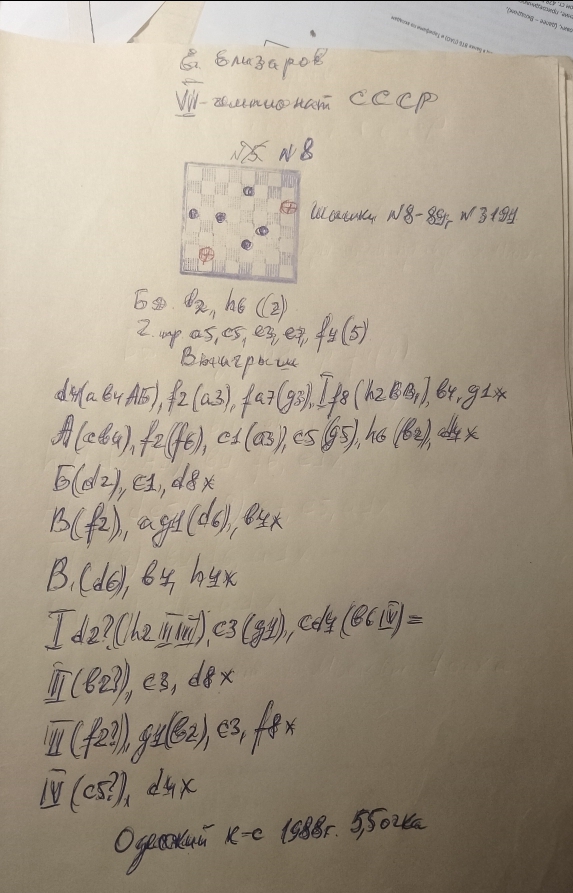 Е. Елизаров
VII-чемпионат СССР
N5 N8
Шашки N8-89г. N3199
Бд. в2, h6 (2)
2. пр. a5, c5, e3, e7, f4 (5)
Выигрыш
d4(ав4АБ), f2(a3), fa7(g3), I f8(h2ВВ₁), в4, g1x
А(св4), f2(f6), c1(a3), c5(g5), h6(в2), d4x
Б(d2), c1, d8x
В(f2), ag1(d6), в4x
В₁(d6), в4, h4x
I d2?(h2 II III), c3(g4), cd4(в6 IV)=
II(в2?), c3, d8x
III(f2?), g4(в2), c3, f8x
IV(c5?), d4x
Одесский к-с 1988г. 5,5 очка